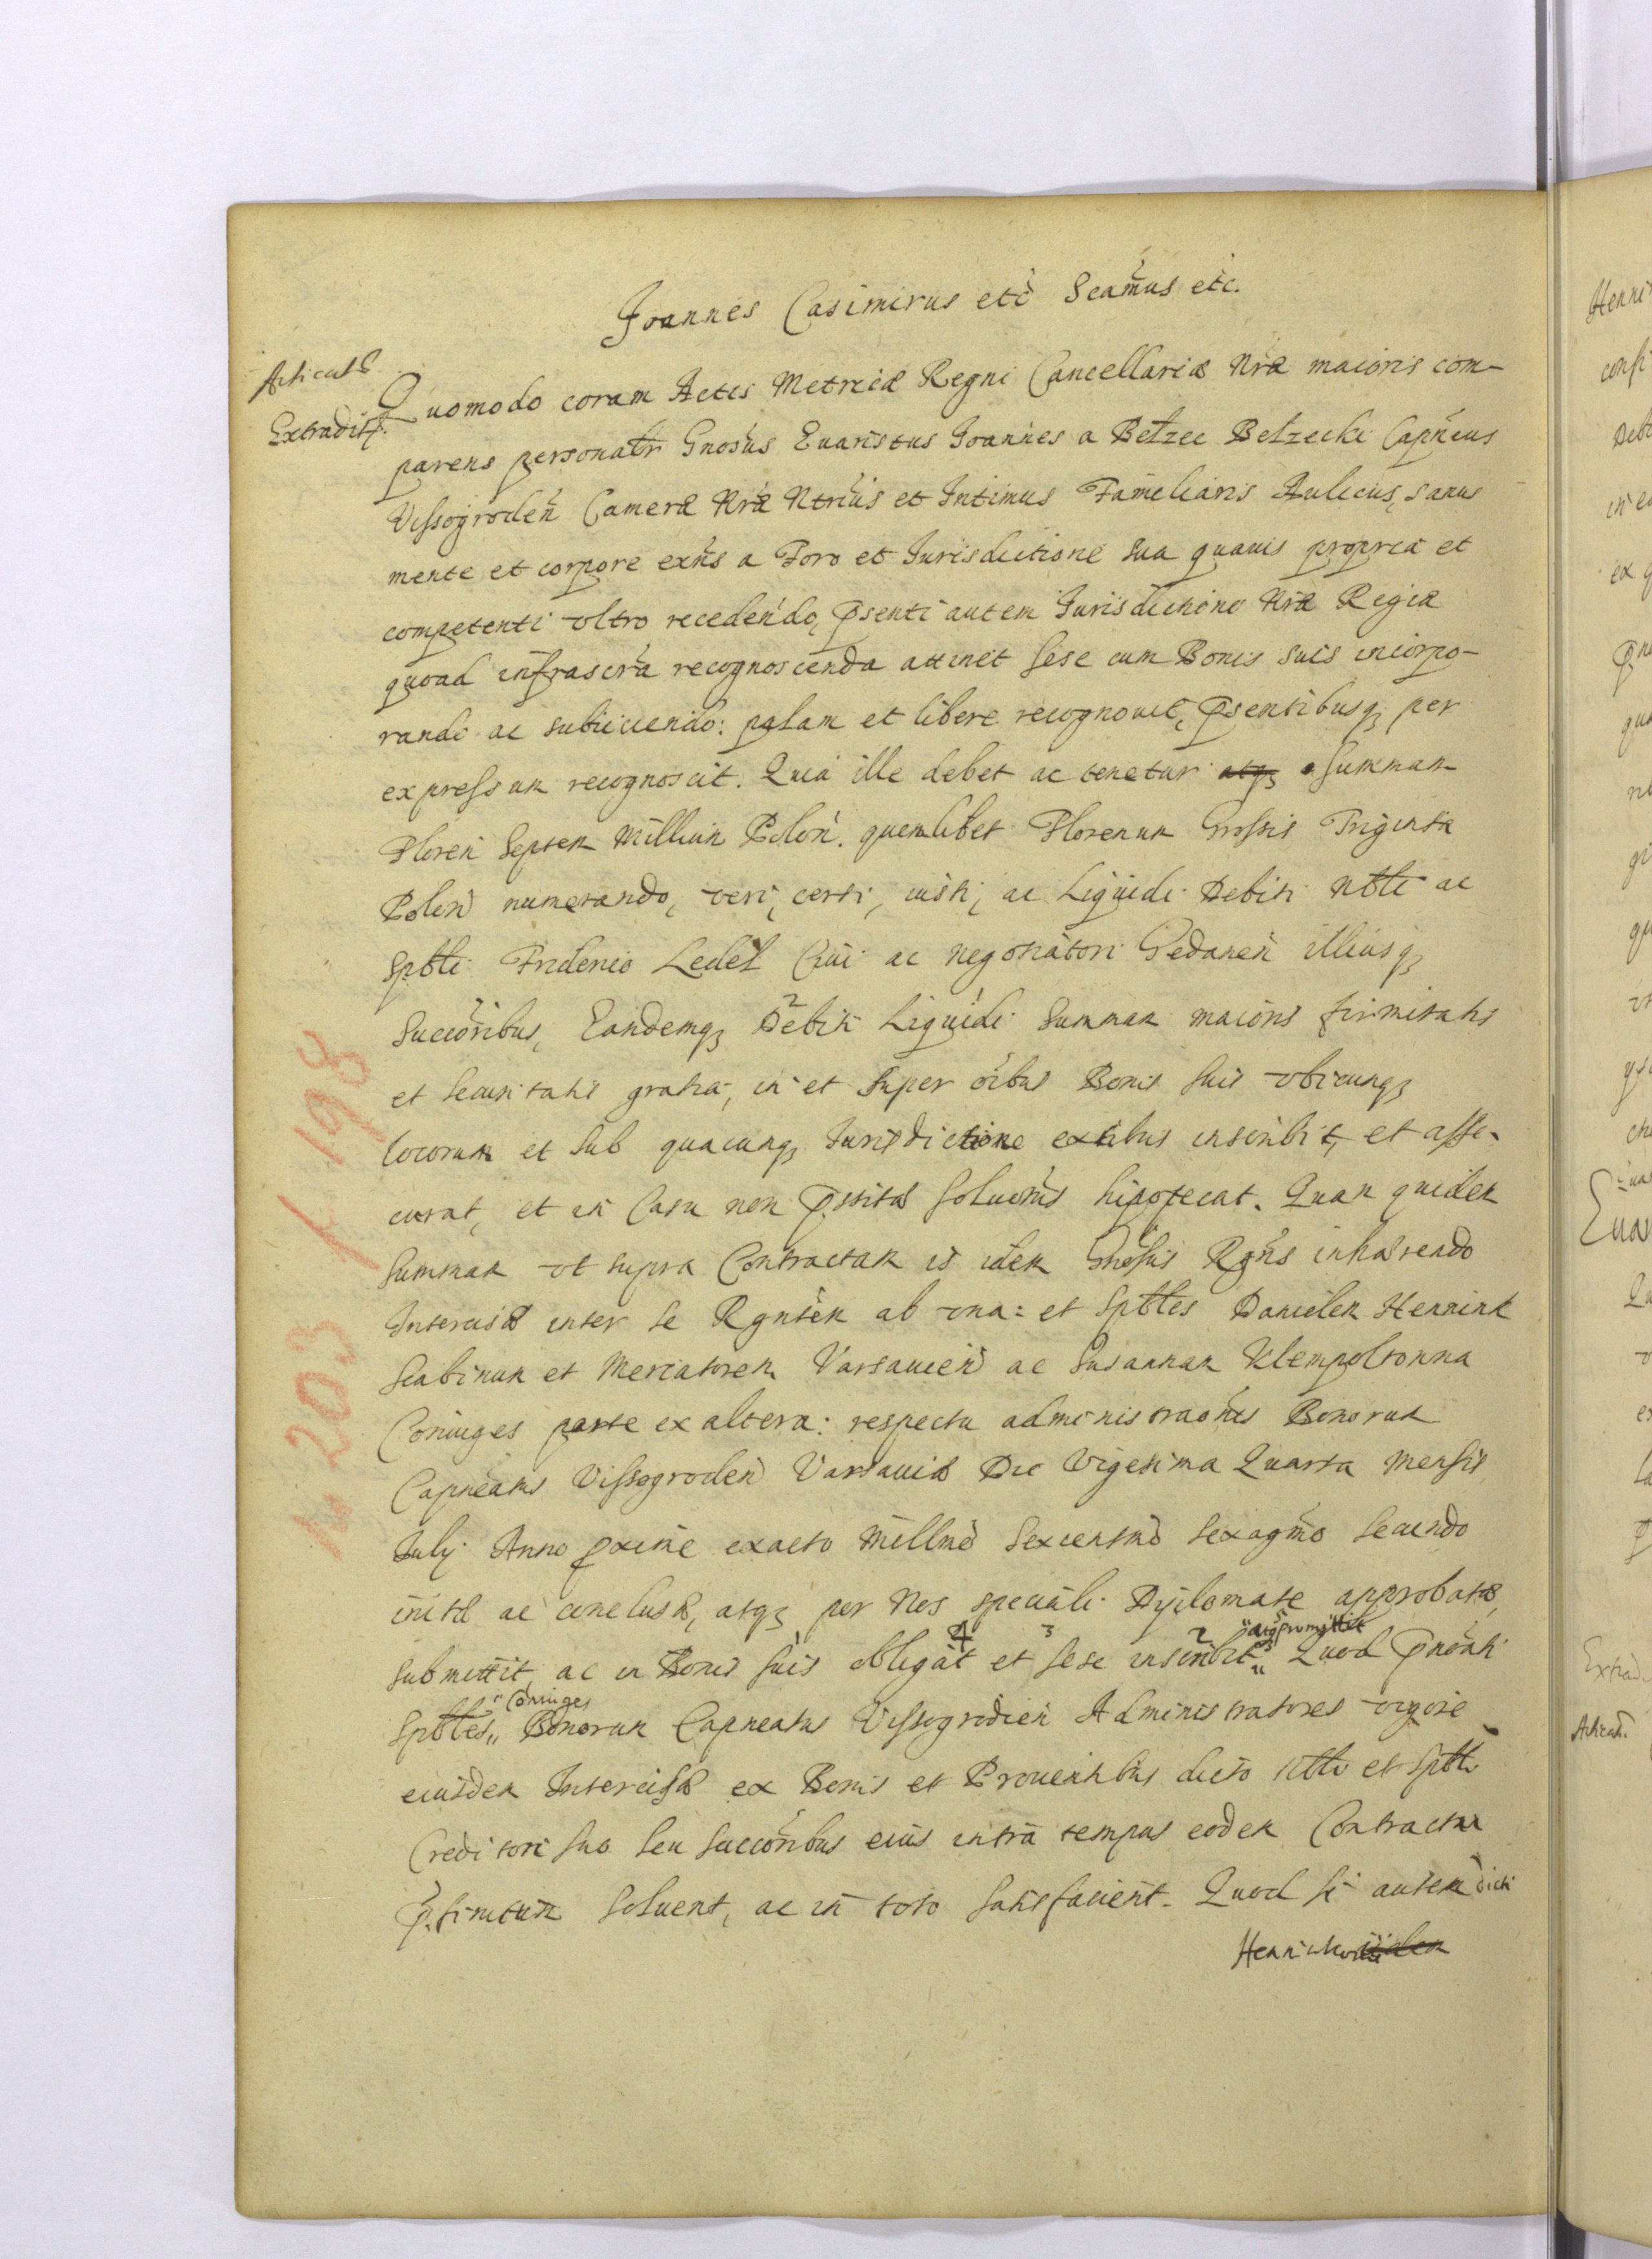 Joannes Casimirus etc Scamus etc.
Acticat
Extradit.
Quomodo coram Actis Metricæ Regni Cancellariæ Nræ maioris com-
parens personalr Gnosus Euaristus Joannes a Bełzec Bełzecki Capneus
Vissogroden Cameræ Nræ Ntrius et Intimus Familiaris Aulicus, sanus
mente et corpore exns a Foro et Jurisdictione sua quauis propria et
competenti vltro recedendo, Psenti autem Jurisdictione Nræ Regiæ
quoad infrascra recognoscenda attinet sese cum Bonis suis incorpo-
rando ac subiiciendo: palam et libere recognouit, Psentibusq per
expressum recognoscit. Quia ille debet ac tenetur atq summam
Floren Septem Millium Polon. quemlibet Florenum Grossis Triginta
Polon numerando, veri, certi, iusti, ac Liquidi Debiti Nbli ac
Spbli Friderico Ledel Ciui ac negotiatori Gedanen illiusq
Succoribus, Eandemq Debiti Liquidi Summam maioris firmitatis
et securitatis gratia, in et super oibus Bonis suis vbicunq
locorum et sub quacunq Jurisdictione exntibus inscribit, et asse-
curat, et in Casu non Pstitæ Soluonis hipotecat. Quam quidem
summam vt supra Contractam is idem Gnosus Rgns inhærendo
Intercisæ inter se Rgntem ab vna: et Spbles Danielem Henrink
Scabinum et Mercatorem Varsauien ac Susannam Klempoltowna
Coniuges parte ex altera: respectu administraonis Bonorum
Capneatus Vissogroden Varsauiæ Die Vigesima Quarta Mensis
Julij Anno proxime exacto Millmo Sexcentmo sexagmo secundo
initæ ac conclusæ, atq per Nos speciali Diplomate approbatæ,
submittit, ac in Bonis suis obligat et sese inscribit atq promittit Quod Pnonati
4 3 2
Spbles Coniuges Bonorum Capneatus Vissogrodien Administratores vigore
eiusdem Intercisæ ex Bonis et Prouentibus dicto Nbli et Spbli
Creditori suo seu succoribus eius intra tempus eodem Contractu
Pfinitum Soluent, ac in toto satisfacient. Quod si autem dicti
203 f 198